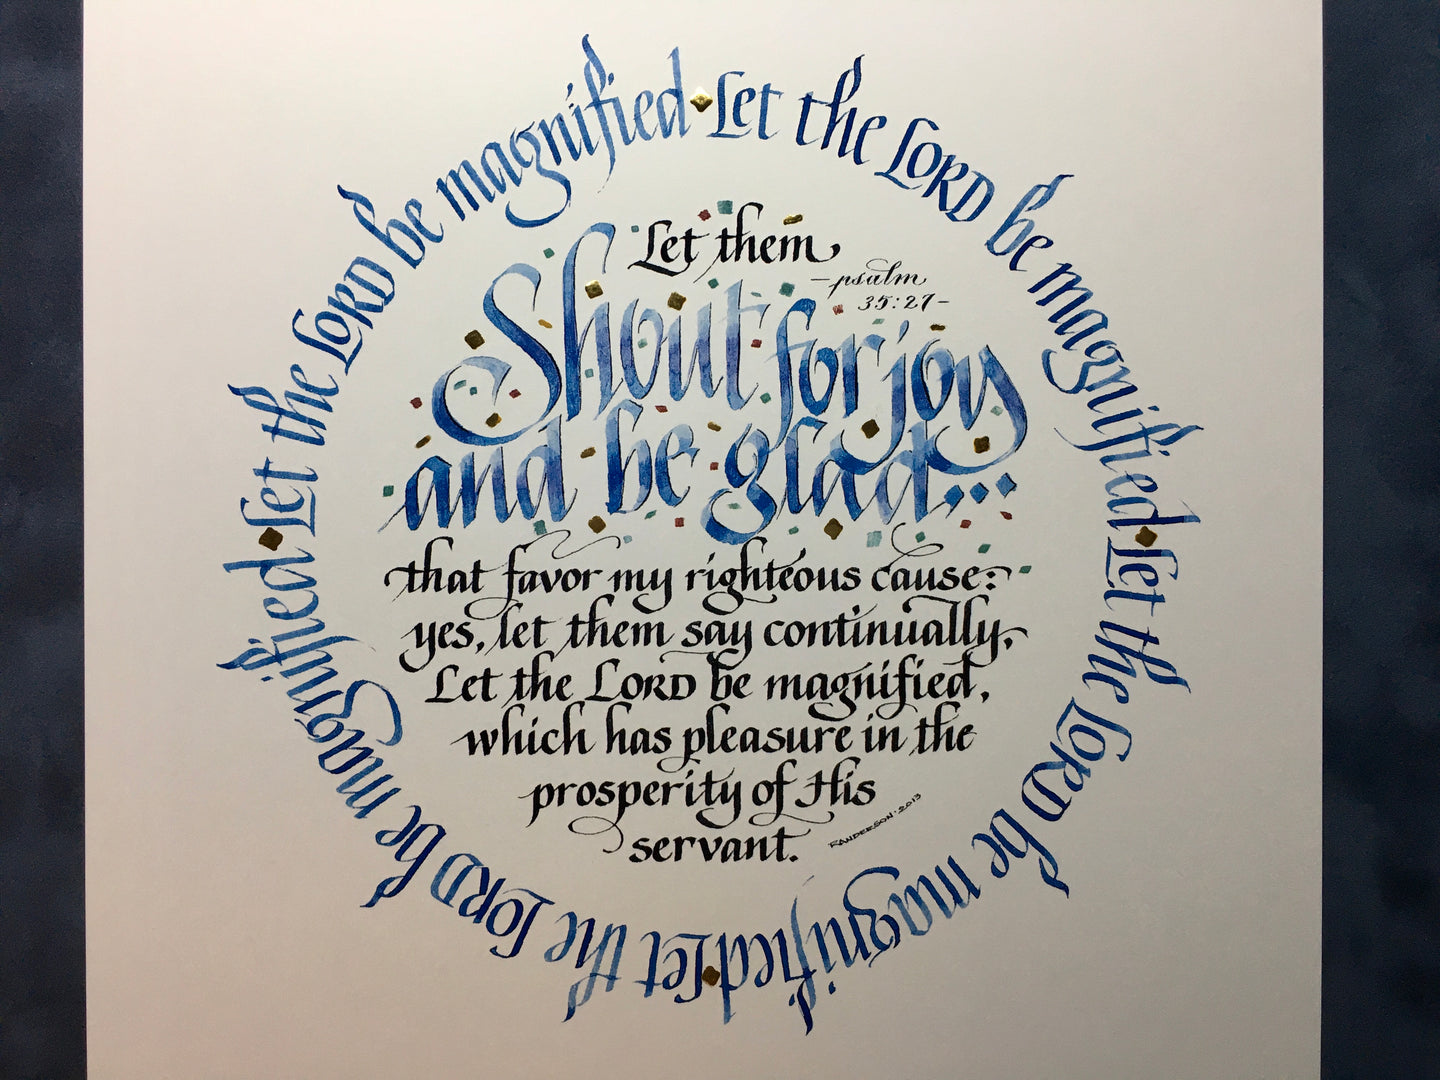 Let the LORD be magnified
Let the LORD be magnified
Let the LORD be magnified
Let the LORD be magnified
Let them
-psalm
35:27-
Shout for joy
and be glad...
that favor my righteous cause:
yes, let them say continually,
Let the LORD be magnified,
which has pleasure in the
prosperity of His
servant.
RANDERSON·2013